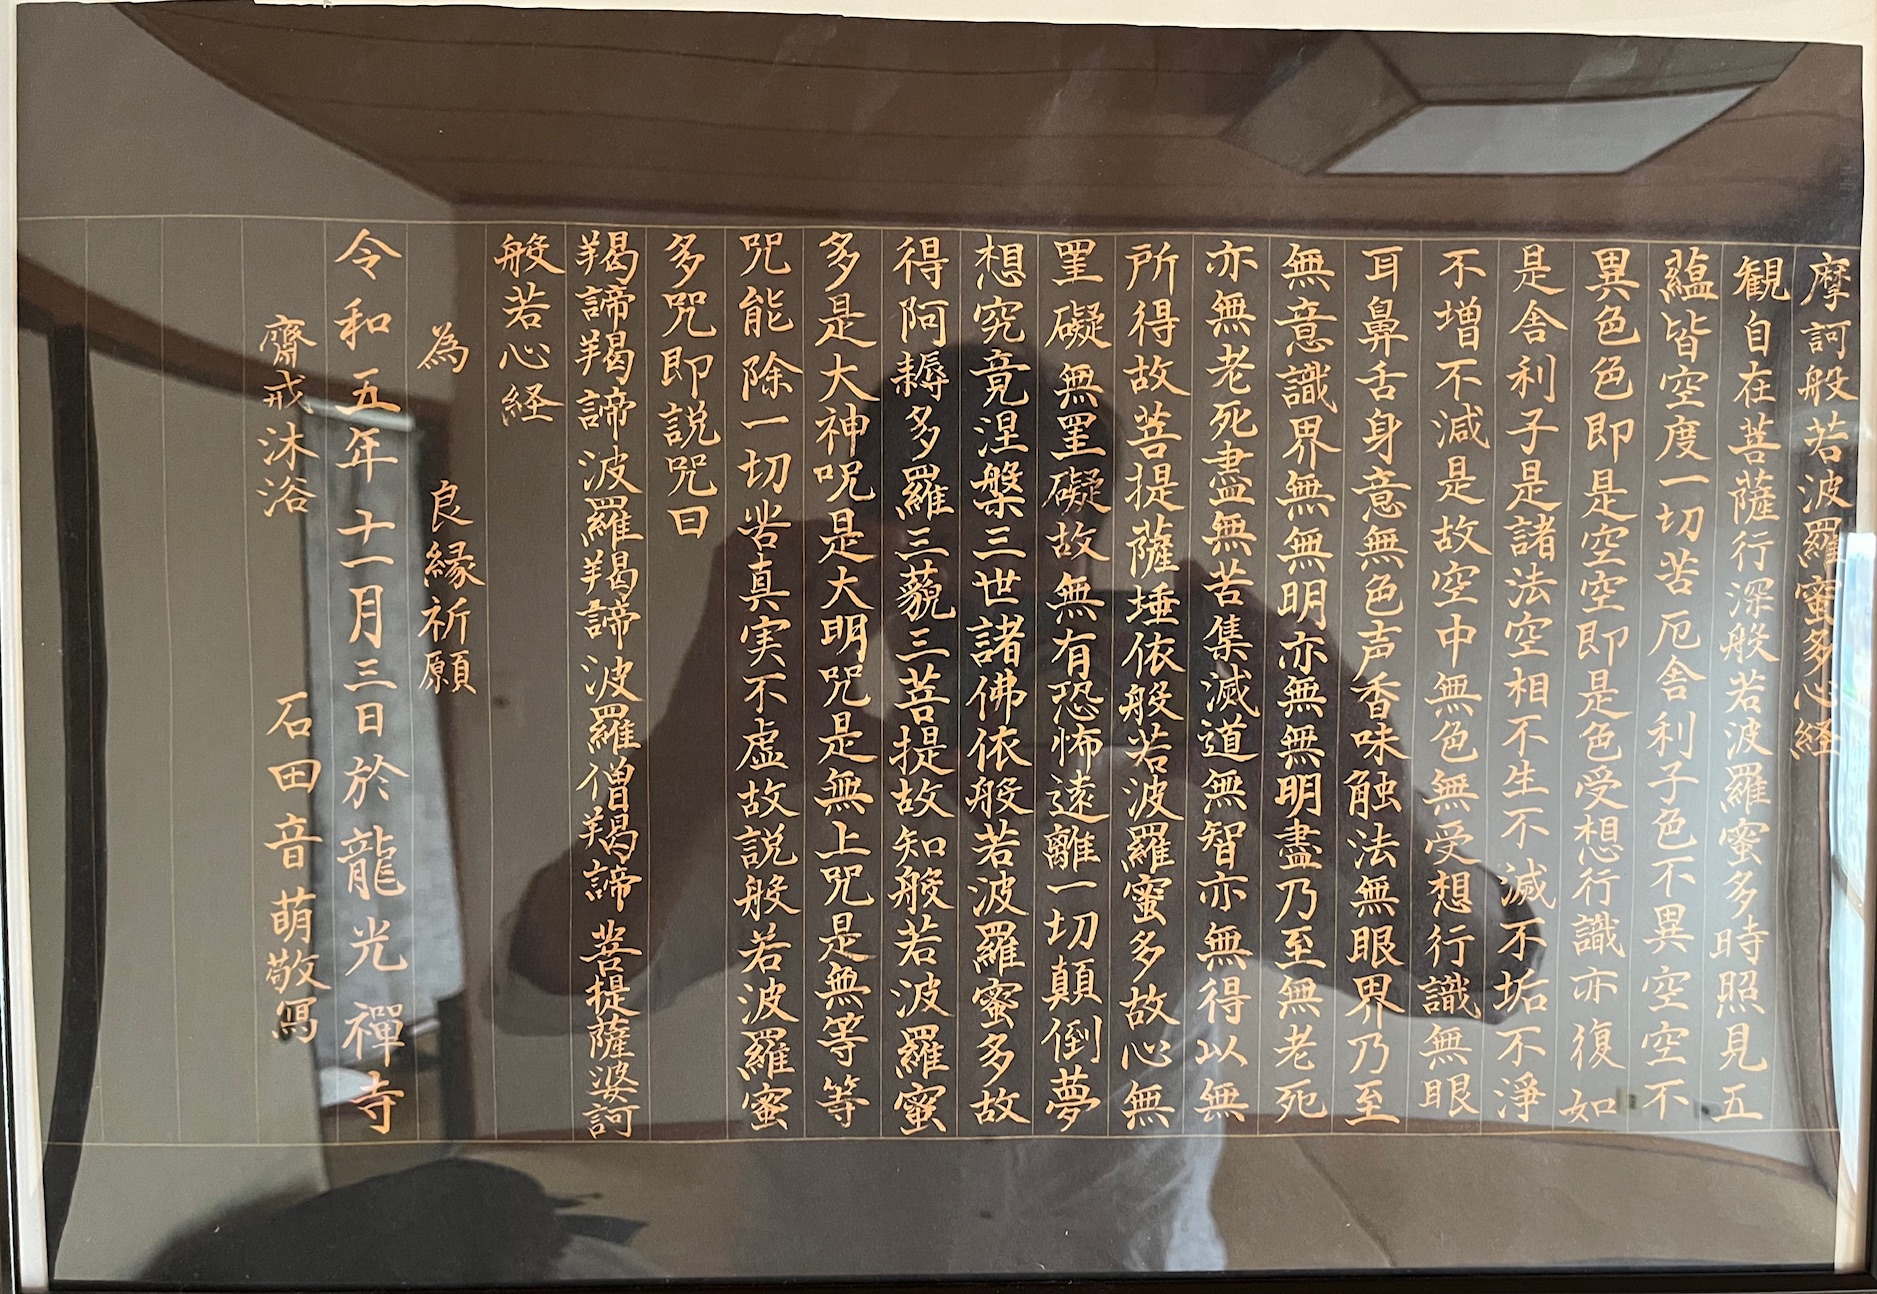 摩訶般若波羅蜜多心経
観自在菩薩行深般若波羅蜜多時照見五
蘊皆空度一切苦厄舎利子色不異空空不
異色色即是空空即是色受想行識亦復如
是舎利子是諸法空相不生不滅不垢不淨
不増不減是故空中無色無受想行識無眼
耳鼻舌身意無色声香味触法無眼界乃至
無意識界無無明亦無無明盡乃至無老死
亦無老死盡無苦集滅道無智亦無得以無
所得故菩提薩埵依般若波羅蜜多故心無
罣礙無罣礙故無有恐怖遠離一切顛倒夢
想究竟涅槃三世諸佛依般若波羅蜜多故
得阿耨多羅三藐三菩提故知般若波羅蜜
多是大神呪是大明呪是無上呪是無等等
呪能除一切苦真実不虚故説般若波羅蜜
多呪即説呪曰
羯諦羯諦波羅羯諦波羅僧羯諦菩提薩婆訶
般若心経
為 良縁祈願
令和五年十一月三日於龍光禪寺
齋戒沐浴 石田音萌敬寫